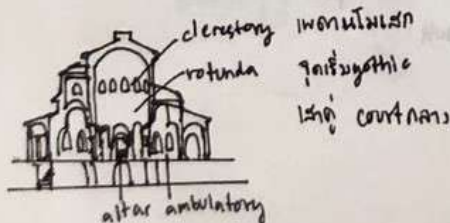 clerestory
rotunda
altar ambulatory
เพดานโมเสก
จุดเริ่มgothic
เสาคู่ courtกลาง